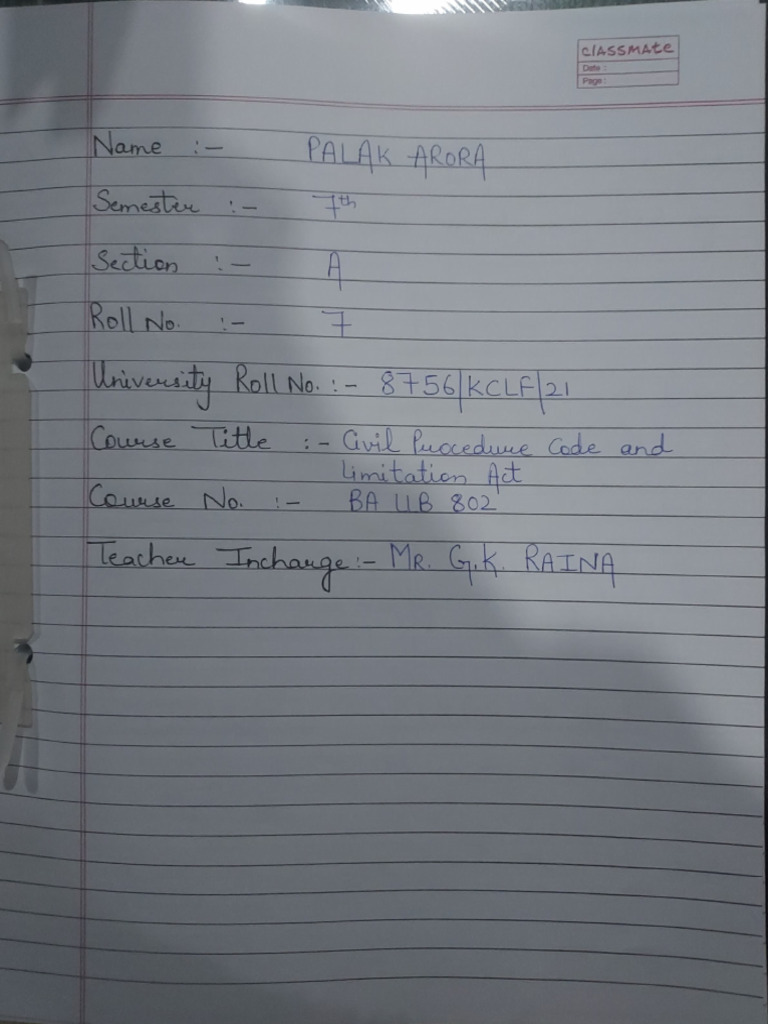 classmate
Date :
Page :
Name :- PALAK ARORA
Semester :- 7th
Section :- A
Roll No. :- 7
University Roll No. :- 8756|KCLF|21
Course Title :- Civil Procedure Code and
Limitation Act
Course No. :- BA LLB 802
Teacher Incharge :- MR. G.K. RAINA